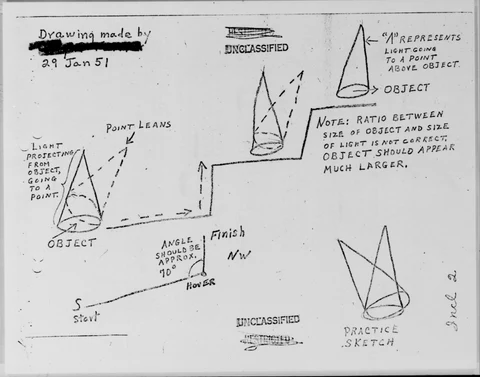 Drawing made by
29 Jan 51
UNCLASSIFIED
"Λ" REPRESENTS
LIGHT GOING
TO A POINT
ABOVE OBJECT.
OBJECT
NOTE: RATIO BETWEEN
SIZE OF OBJECT AND SIZE
OF LIGHT IS NOT CORRECT.
OBJECT SHOULD APPEAR
MUCH LARGER.
POINT LEANS
LIGHT
PROJECTING
FROM
OBJECT,
GOING
TO A
POINT.
OBJECT
ANGLE
SHOULD BE
APPROX.
70°
Finish
NW
HOVER
S
Start
UNCLASSIFIED
RESTRICTED
PRACTICE
SKETCH
Incl 2